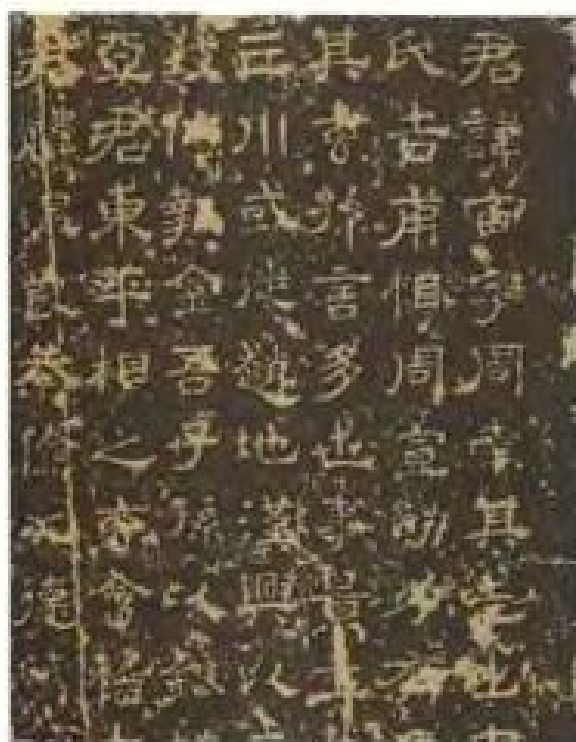 君諱宙字周南其先出
氏吉甫相周宣勛力有
其玄孫言多世事景王
三川或徙趙地漢興以三
致位執金吾子孫以銀
亞君東平相之玄會稽
君體溫良恭儉之德